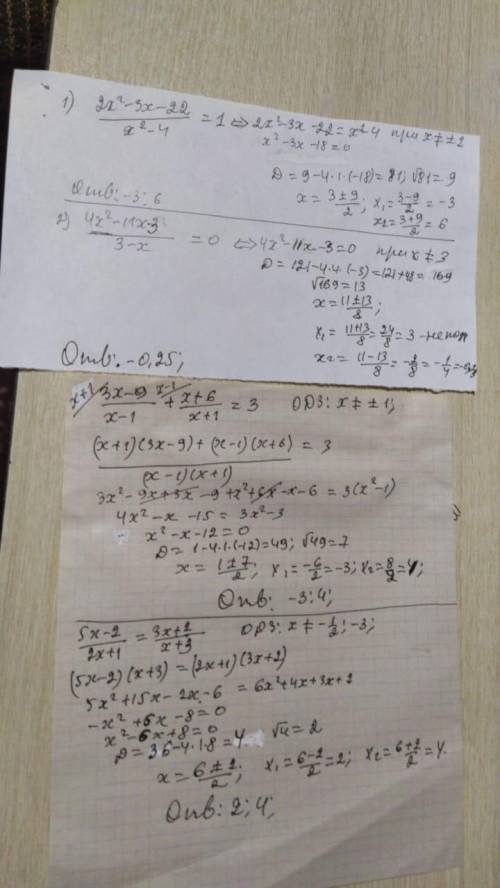 1) (2x²-3x-22)/(x²-4) = 1 ⇔ 2x²-3x-22 = x²-4 при x ≠ ±2
x²-3x-18=0
D = 9-4·1·(-18) = 81; √81 = 9
x = (3±9)/2; x₁ = (3-9)/2 = -3
x₂ = (3+9)/2 = 6
Отв: -3; 6
2) (4x²-11x-3)/(3-x) = 0 ⇔ 4x²-11x-3=0 при x ≠ 3
D = 121-4·4·(-3) = 121+48 = 169
√169 = 13
x = (11±13)/8;
x₁ = (11+13)/8 = 24/8 = 3 -
x₂ = (11-13)/8 = -2/8 = -1/4 =
Отв: -0,25;
x+1/ (3x-9)/(x-1) + x-1/ (x+6)/(x+1) = 3 ОДЗ: x ≠ ±1;
((x+1)(3x-9)+(x-1)(x+6))/((x-1)(x+1)) = 3
3x²-9x+3x-9+x²+6x-x-6 = 3(x²-1)
4x²-x-15 = 3x²-3
x²-x-12=0
D = 1-4·1·(-12) = 49; √49 = 7
x = (1±7)/2; x₁ = -6/2 = -3; x₂ = 8/2 = 4;
Отв: -3; 4;
(5x-2)/(2x+1) = (3x+2)/(x+3) ОДЗ: x ≠ -1/2; -3;
(5x-2)(x+3) = (2x+1)(3x+2)
5x²+15x-2x-6 = 6x²+4x+3x+2
-x²+6x-8=0
x²-6x+8=0
D = 36-4·1·8 = 4 √4 = 2
x = (6±2)/2; x₁ = (6-2)/2 = 2; x₂ = (6+2)/2 = 4.
Отв: 2; 4;